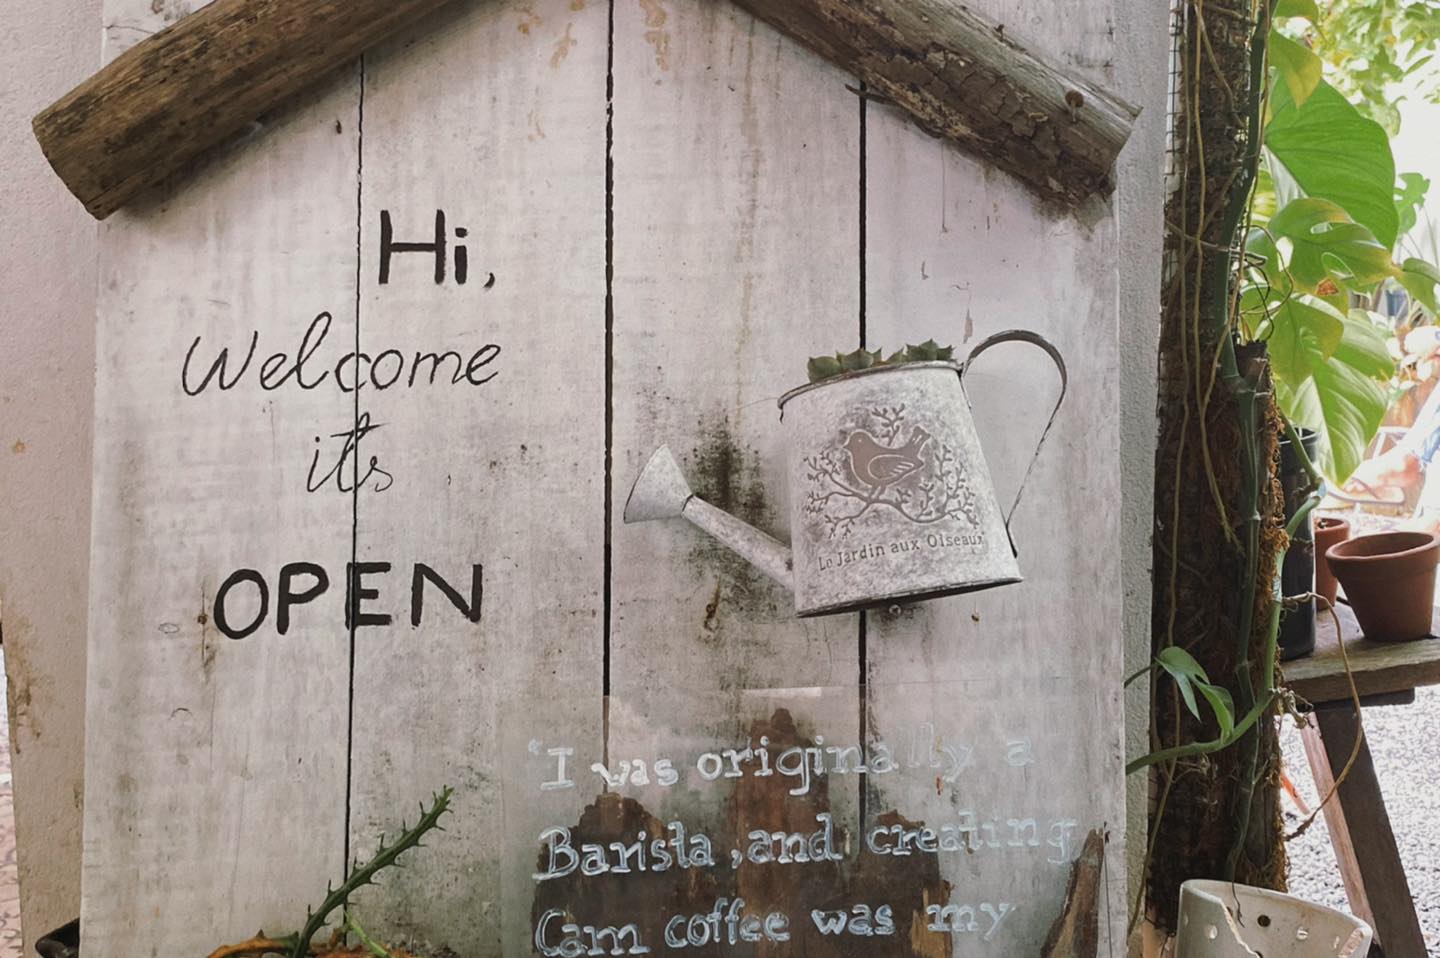 Hi,
Welcome
it's
OPEN
Le Jardin aux Oiseaux
"I was originally a
Barista, and creating
Cam coffee was my